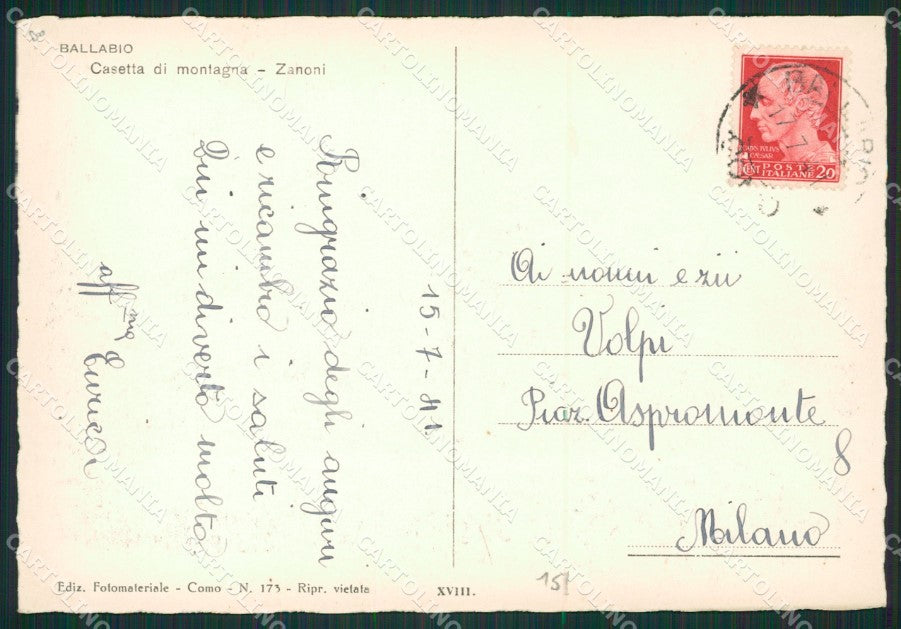 BALLABIO
Casetta di montagna - Zanoni
15-7-41
Ringrazio degli auguri
e ricambio i saluti
Qui mi diverto molto
aff.ma
Enrica
IVLIVS
CAESAR
CENT POSTE 20
ITALIANE
Ai nonni e zii
Volpi
Piaz. Aspromonte
8
Milano
Ediz. Fotomateriale - Como - N. 173 - Ripr. vietata
XVIII.
15
CARTOLINOMANIA